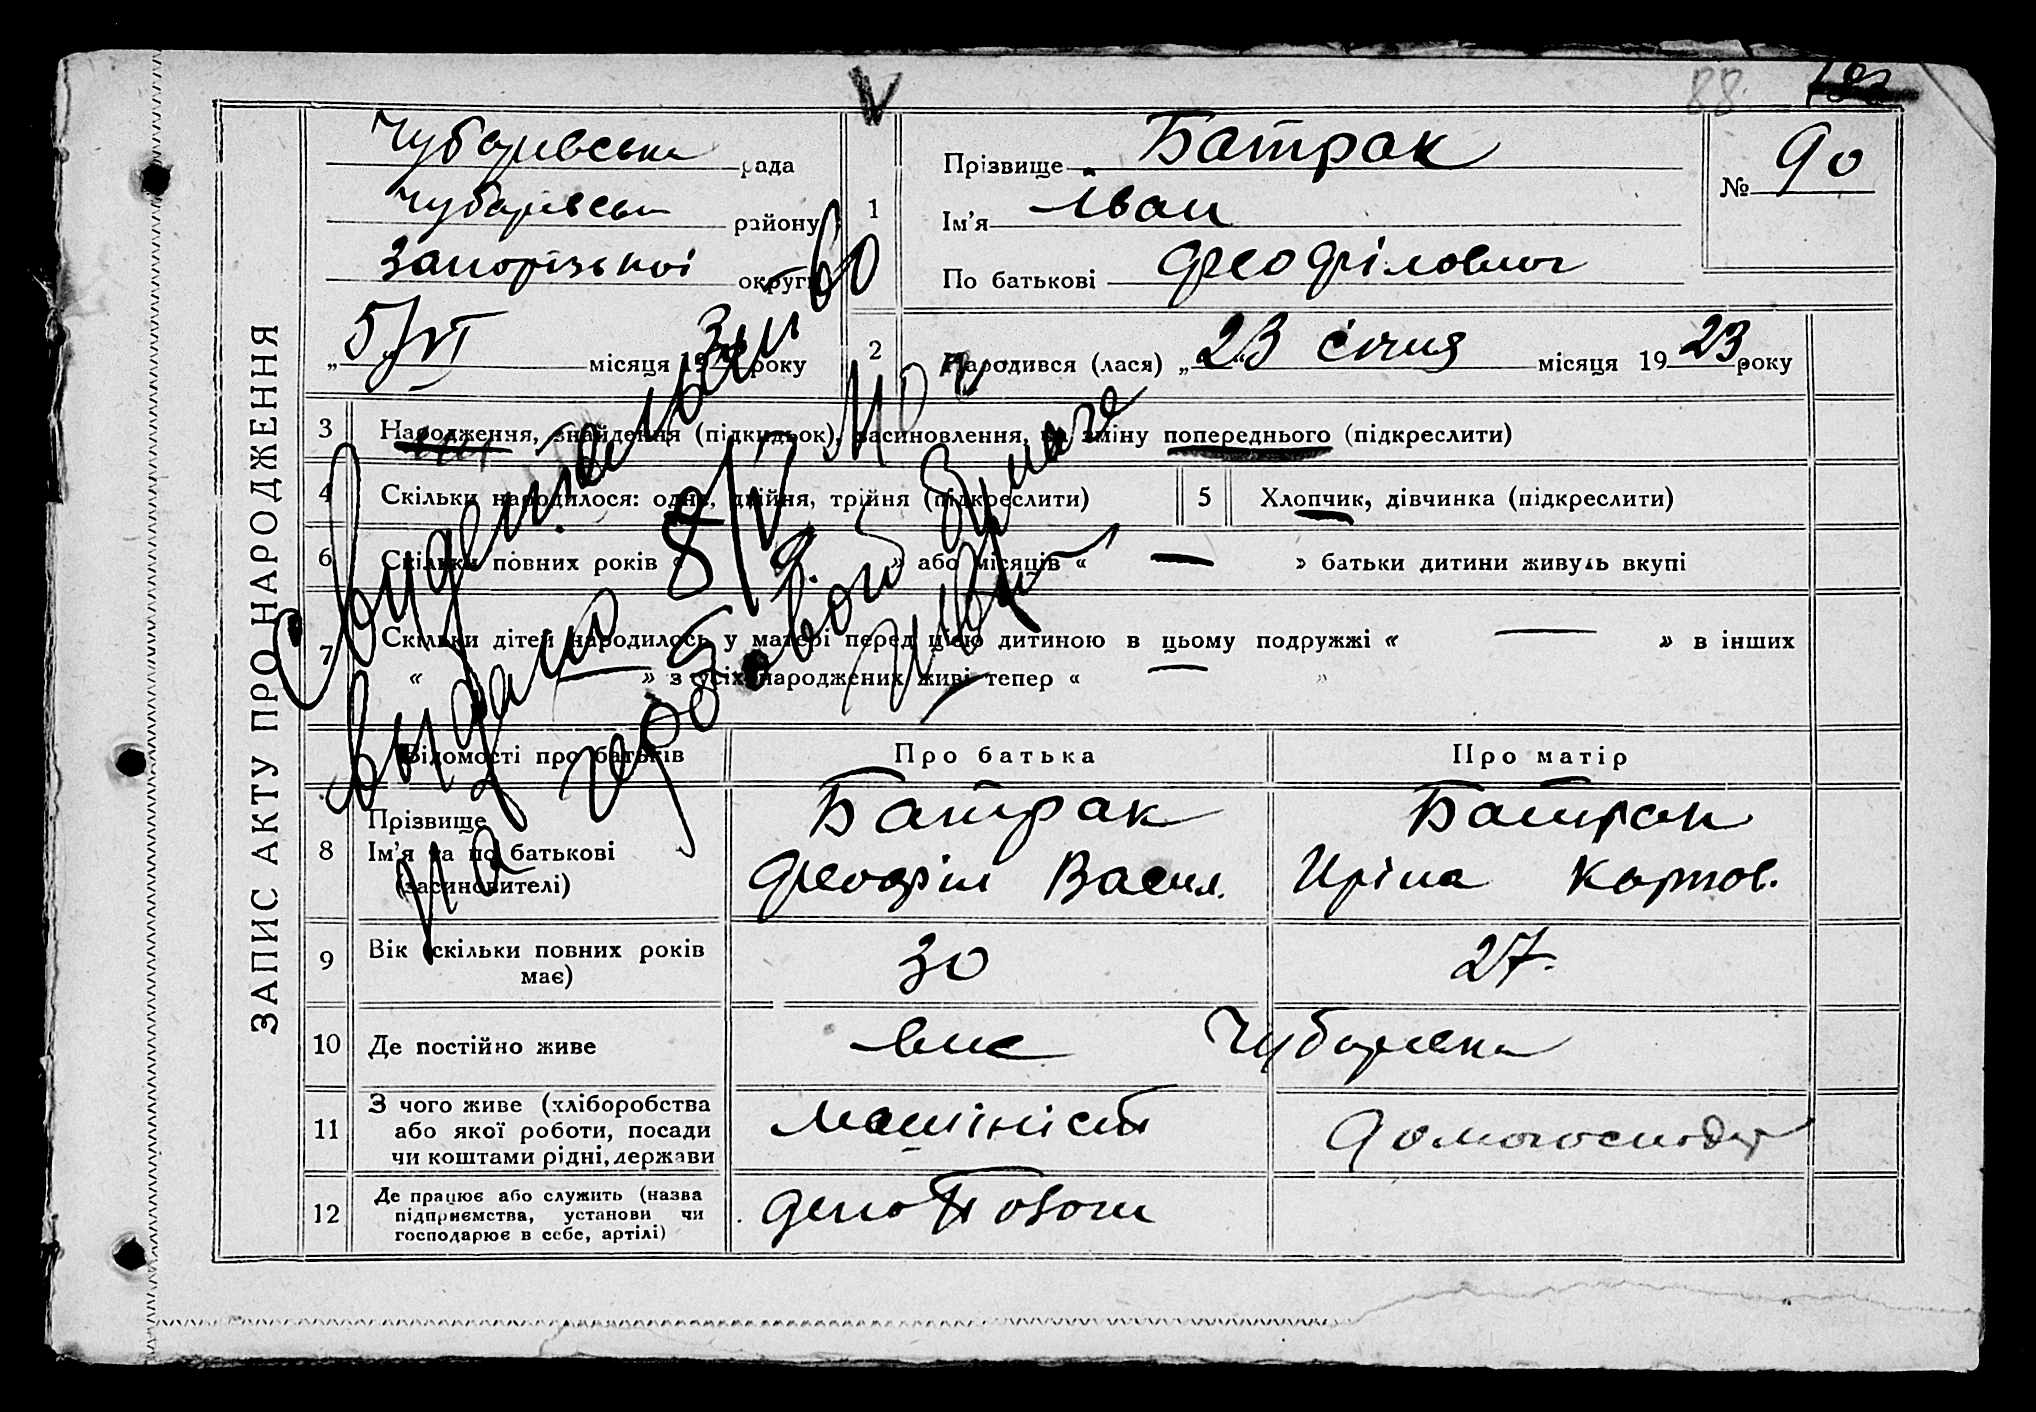 88
ЗАПИС АКТУ ПРО НАРОДЖЕННЯ
Чубарівська рада
Чубарівськ району
Запорізької округи
5/VI місяця 19 року
1
Прізвище Батрак
Ім'я Іван
По батькові Феофілович
№ 90
2
Народився (лася) „ 23 січня місяця 19 23 року
3 Народження, знайдення (підкидьок), засиновлення, на зміну попереднього (підкреслити)
4 Скільки народилося: одне, двійня, трійня (підкреслити)
5 Хлопчик, дівчинка (підкреслити)
6 Скільки повних років « — » або місяців « — » батьки дитини живуть вкупі
7 Скільки дітей народилось у матері перед цією дитиною в цьому подружжі « — » в інших
« — » з усіх народжених живі тепер « — »
Відомості про батьків
Про батька
Про матір
8 Прізвище
Ім'я та по батькові
(засиновителі)
Батрак
Феофіл Васил.
Батрак
Иріна Карпов.
9 Вік (скільки повних років
має)
30
27.
10 Де постійно живе
Чубарівка
11 З чого живе (хліборобства
або якої роботи, посади
чи коштами рідні, держави
машініст
домогосподар
12 Де працює або служить (назва
підприємства, установи чи
господарює в себе, артілі)
депо Пологи
8/V
на гербовой бумаге